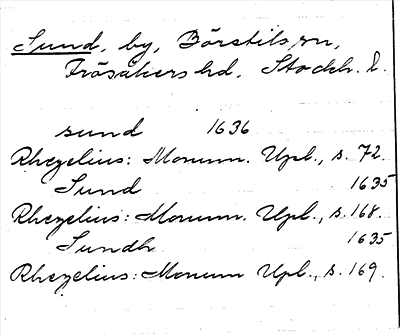 Sund, by, Börstils sn,
Frösåkers hd, Stockh. l.
sund 1636
Rhezelius: Monum. Upl., s. 72.
Sund 1635
Rhezelius: Monum. Upl., s. 168.
Sundh 1635
Rhezelius: Monum Upl., s. 169.